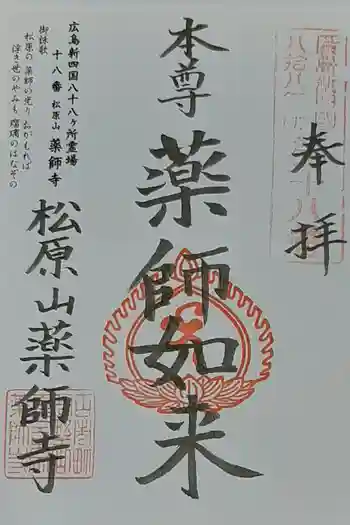 奉拝
本尊
薬師如来
広島新四国八十八ヶ所霊場
十八番 松原山 薬師寺
御詠歌
松原の 薬師の光り おがもれば
浮き世のやみも 瑠璃のはなぞの
松原山薬師寺